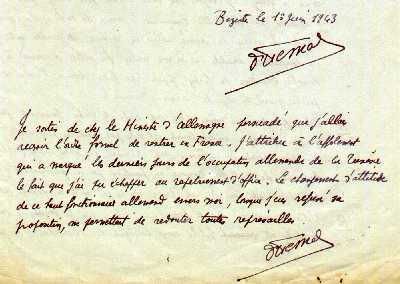 Bizerte le 15 Juin 1943
Je sortis de chez le Ministre d'Allemagne persuadé que j'allais
recevoir l'ordre formel de rentrer en France. J'attribue à l'affolement
qui a marqué les derniers jours de l'occupation allemande de la Tunisie
le fait que j'ai pu échapper au rapatriement d'office. Le changement d'attitude
de ce haut fonctionnaire allemand envers moi, lorsque j'eus refusé sa
proposition, me permettait de redouter toutes représailles.